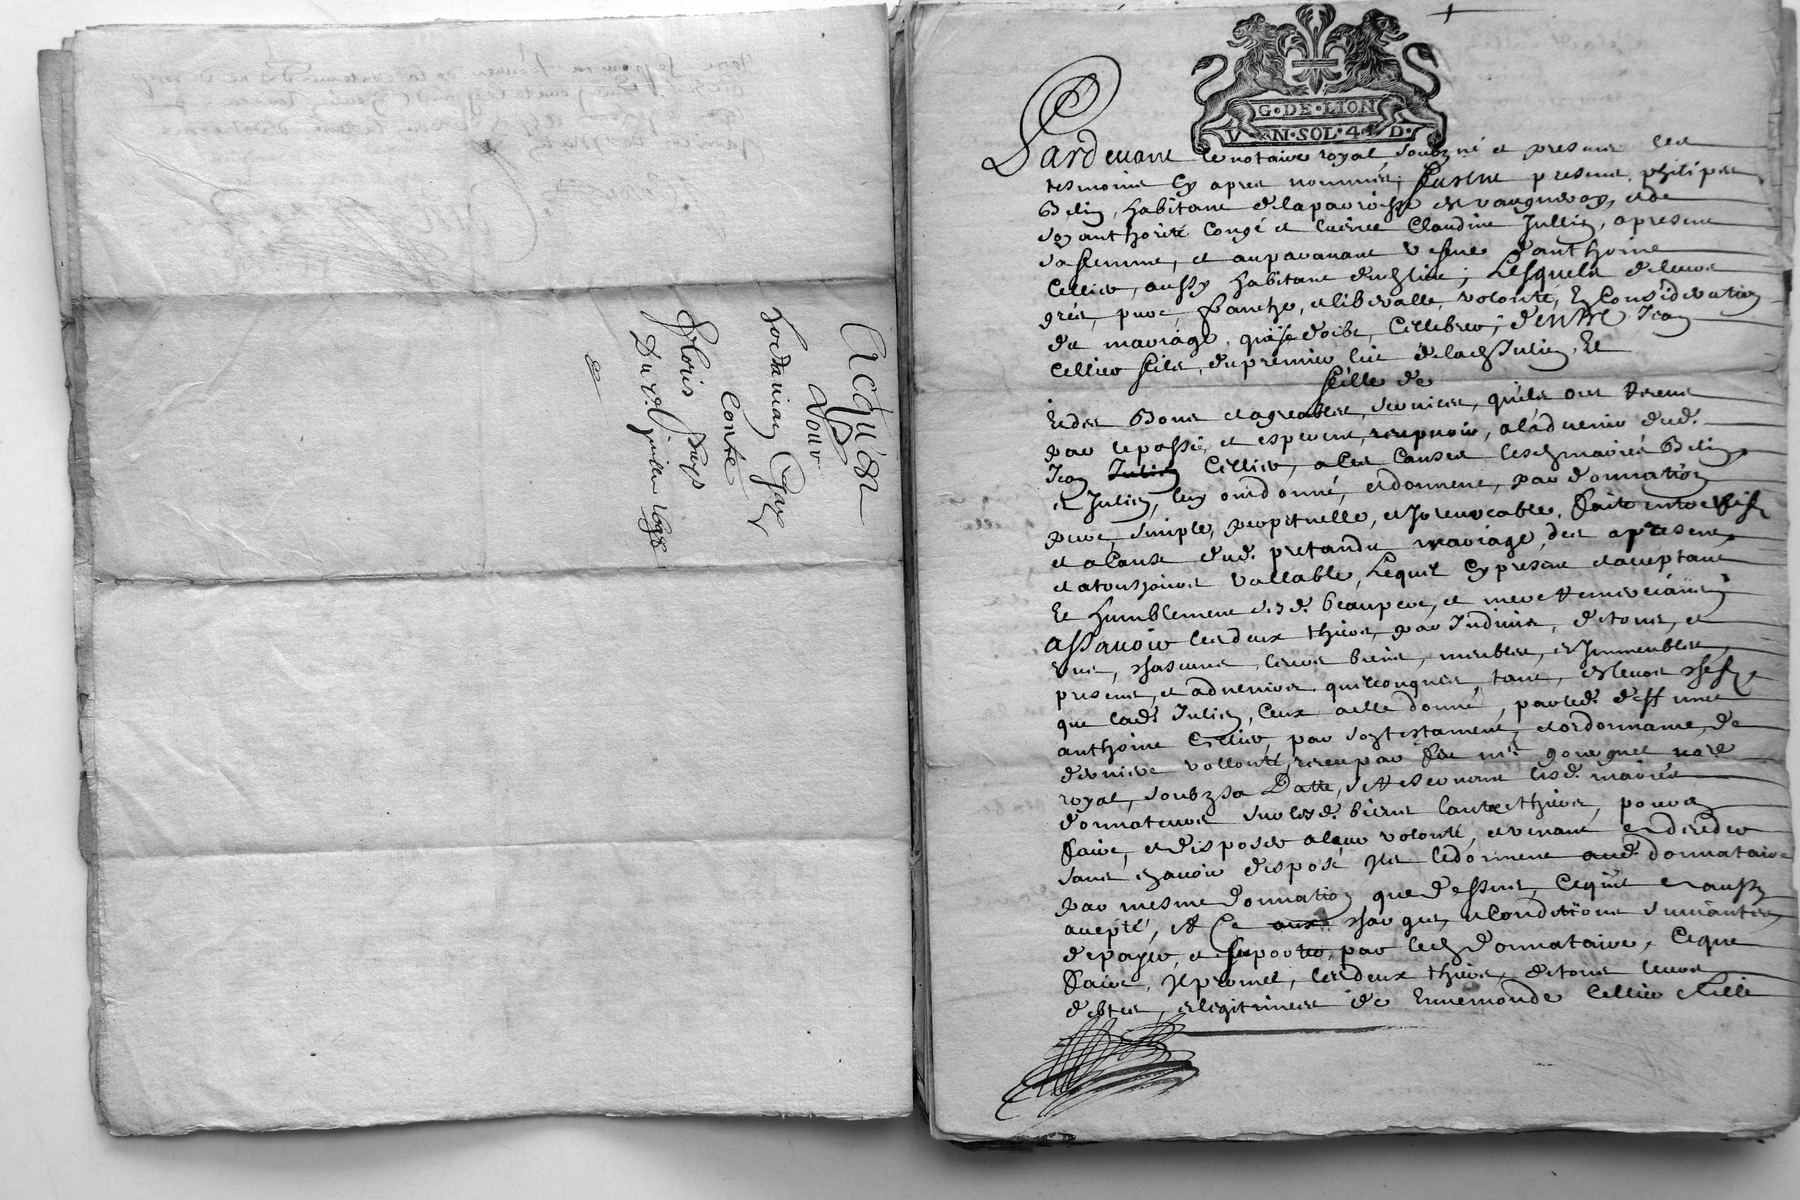 Acquést
pour
Jordaniau Gay
Conte
floris puys
Du 26 juillet 1698
G·DE·LION
VN·SOL·4·D·
Pardevant le notaire royal soubzné et present les
tesmoins cy apres nommés, furent presens philipes
Belin, habitant de la parroisse de vaugneray, et de
son authorité congé et licence Claudine Jullien, a present
sa femme, et auparavant vefve d'anthoine
Cellier, aussy habitant dud lieu; Lesquels de leurs
grés, pure, franche, et liberalle volonté, En Consideration
du mariage, qui se doibt Cellebrer, d'entre Jean
Cellier fils, du premier lict de lad Julien, Et
fille de
Et des Bons et agreables services, qu'ils ont receus
par le passé, et esperent recepvoir, a l'advenir dud.
Jean Cellier, a Ces Causes lesd mariés Belin,
et Julien, luy ont donné, et donnent, par donnation
pure, simple, perpetuelle, et Irrevocable, faite entre vifs
et a Cause dud. pretandu mariage, des a present
et a tousjours vallable, Lequel Cy present et acceptant
Et humblement sesd. beaupere, et mere remerciant
assavoir les deux thiers, par Indivis, de tous, et
uns, chascuns leurs biens, meubles, et Immeubles,
presens, et advenirs quelconques, tant, de leurs chefs,
que lad. Julien, Ceux a elle donné, par led. deffunct
anthoine Cellier, par son testament, et ordonnance, de
derniere vollonté, receu par feu me gouignet nore
royal, soubz sa Datte, se reservant lesd. mariés
donnateurs sur lesd. biens l'autre thiers, pour en
faire, et disposer a leur volonté, et venant a deceder
sans en avoir disposé Ils le donnent aud. donnataire
par mesme donnation que dessus, Ce qu'il a aussy
accepté, et Ce aux charges, et Conditions suivantes
de payer, et suporter, par led donnataire, Ce que
faire, Il promet, les deux thiers, de tous leurs
debtes, et legitimes de Ennemonde Cellier fille